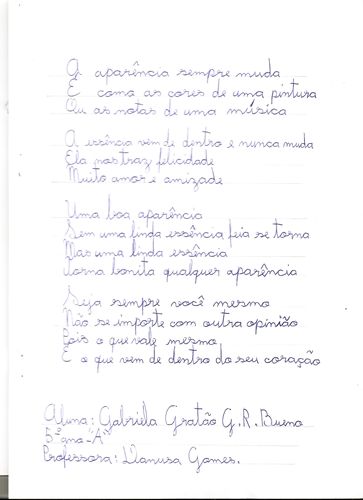 A aparência sempre muda
É como as cores de uma pintura
Ou as notas de uma música
A essência vem de dentro e nunca muda
Ela nos traz felicidade
Muito amor e amizade
Uma boa aparência
Sem uma linda essência feia se torna
Mas uma linda essência
Torna bonita qualquer aparência
Seja sempre você mesmo
Não se importe com outra opinião
Pois o que vale mesmo
É o que vem de dentro do seu coração
Aluna: Gabriela Gratão G. R. Bueno
5º ano - "A"
Professora: Vanusa Gomes.